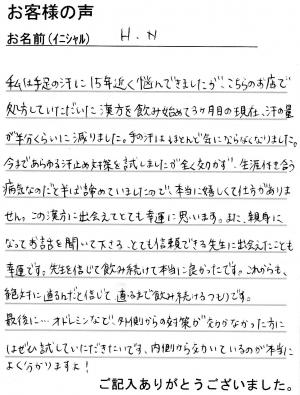 お客様の声
お名前(イニシャル) H.N
私は手足の汗に15年近く悩んできましたが、こちらのお店で
処方していただいた漢方を飲み始めて3ヶ月目の現在、汗の量
が半分くらいに減りました。手の汗はほとんど気にならなくなりました。
今まであらゆる汗止め対策を試しましたが全く効かず、生涯付き合う
病気なのだと半ば諦めていましたので、本当に嬉しくて仕方がありま
せん。この漢方に出会えてとても幸運に思います。また、親身に
なってお話を聞いて下さる、とても信頼できる先生に出会えたことも
幸運です。先生を信じて飲み続けて本当に良かったです。これからも、
絶対に治るんだと信じて治るまで飲み続けるつもりです。
最後に…オドレミンなど、外側からの対策が効かなかった方に
はぜひ試していただきたいです。内側から効いているのが本当に
よく分かりますよ!
ご記入ありがとうございました。